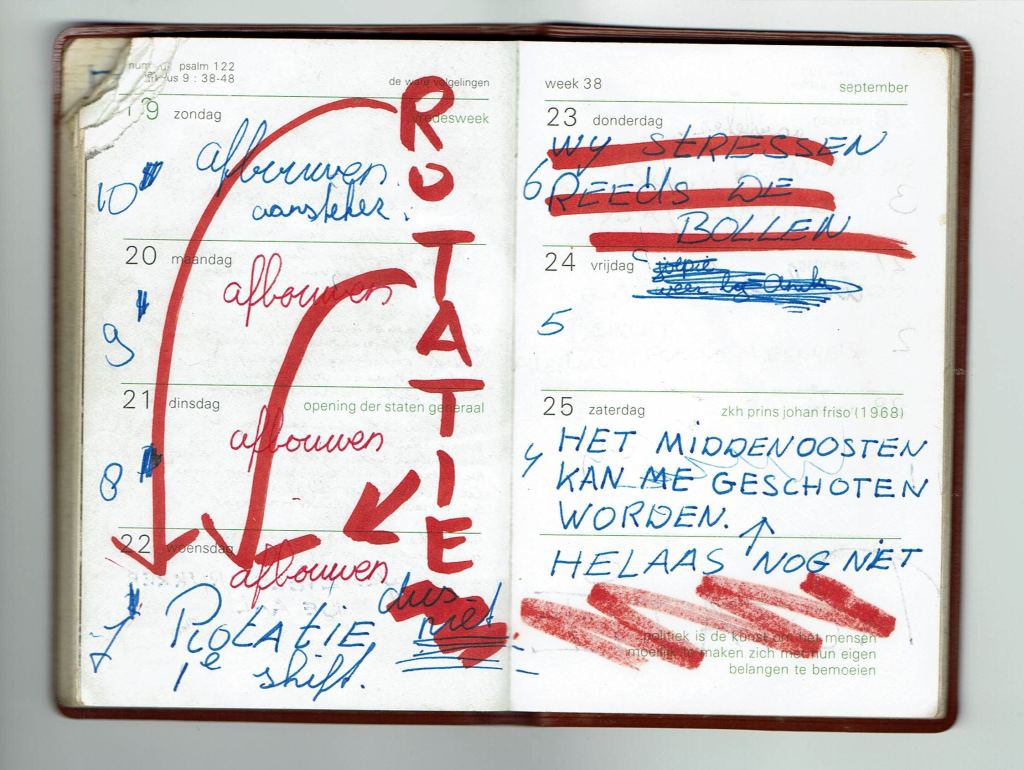 psalm 122
us 9 : 38-48
de ware volgelingen
19 zondag
vredesweek
ROTATIE
10
afbouwen
aansteker.
20 maandag
afbouwen
9
21 dinsdag
opening der staten generaal
afbouwen
8
22 woensdag
afbouwen
dus
niet
7
ROTATIE
1e shift.
week 38
september
23 donderdag
WY STRESSEN
6 REEDS DE
BOLLEN
24 vrijdag
weer by
5
25 zaterdag
zkh prins johan friso (1968)
4
HET MIDDENOOSTEN
KAN ME GESCHOTEN
WORDEN.
HELAAS NOG NIET
politiek is de kunst om het mensen
moeilijk te maken zich met hun eigen
belangen te bemoeien